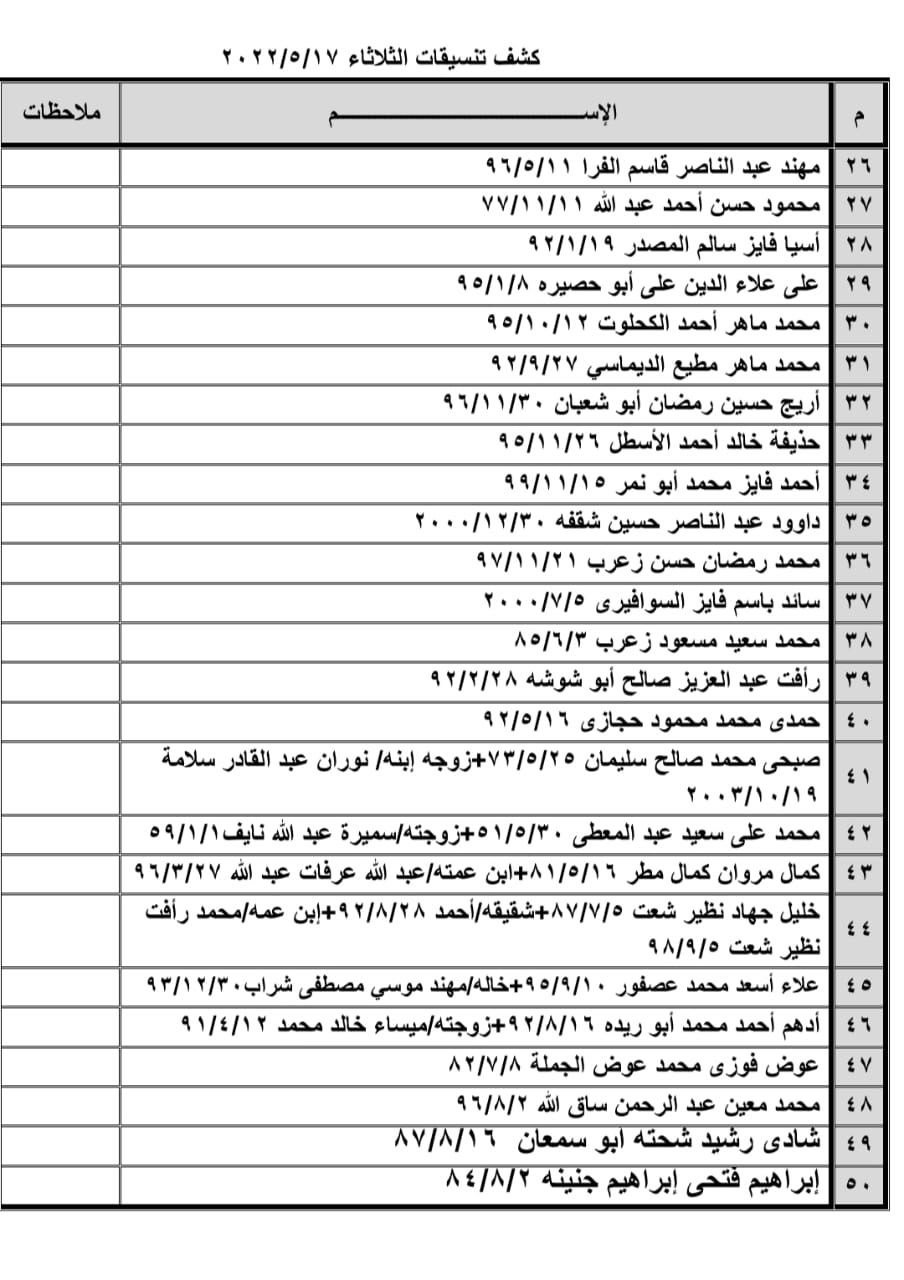 كشف تنسيقات الثلاثاء ٢٠٢٢/٥/١٧
م الإســــــــم ملاحظات
٢٦ مهند عبد الناصر قاسم الفرا ٩٦/٥/١١
٢٧ محمود حسن أحمد عبد الله ٧٧/١١/١١
٢٨ أسيا فايز سالم المصدر ٩٢/١/١٩
٢٩ على علاء الدين على أبو حصيره ٩٥/١/٨
٣٠ محمد ماهر أحمد الكحلوت ٩٥/١٠/١٢
٣١ محمد ماهر مطيع الديماسي ٩٢/٩/٢٧
٣٢ أريج حسين رمضان أبو شعبان ٩٦/١١/٣٠
٣٣ حذيفة خالد أحمد الأسطل ٩٥/١١/٢٦
٣٤ أحمد فايز محمد أبو نمر ٩٩/١١/١٥
٣٥ داوود عبد الناصر حسين شقفه ٢٠٠٠/١٢/٣٠
٣٦ محمد رمضان حسن زعرب ٩٧/١١/٢١
٣٧ سائد باسم فايز السوافيرى ٢٠٠٠/٧/٥
٣٨ محمد سعيد مسعود زعرب ٨٥/٦/٣
٣٩ رأفت عبد العزيز صالح أبو شوشه ٩٢/٢/٢٨
٤٠ حمدى محمد محمود حجازى ٩٢/٥/١٦
٤١ صبحى محمد صالح سليمان ٧٣/٥/٢٥+زوجه إبنه/ نوران عبد القادر سلامة
٢٠٠٣/١٠/١٩
٤٢ محمد على سعيد عبد المعطى ٥١/٥/٣٠+زوجته/سميرة عبد الله نايف٥٩/١/١
٤٣ كمال مروان كمال مطر ٨١/٥/١٦+ابن عمته/عبد الله عرفات عبد الله ٩٦/٣/٢٧
٤٤ خليل جهاد نظير شعت ٨٧/٧/٥+شقيقه/أحمد ٩٢/٨/٢٨+إبن عمه/محمد رأفت
نظير شعت ٩٨/٩/٥
٤٥ علاء أسعد محمد عصفور ٩٥/٩/١٠+خاله/مهند موسي مصطفى شراب٩٣/١٢/٣٠
٤٦ أدهم أحمد محمد أبو ريده ٩٢/٨/١٦+زوجته/ميساء خالد محمد ٩١/٤/١٢
٤٧ عوض فوزى محمد عوض الجملة ٨٢/٧/٨
٤٨ محمد معين عبد الرحمن ساق الله ٩٦/٨/٢
٤٩ شادى رشيد شحته أبو سمعان ٨٧/٨/١٦
٥٠ إبراهيم فتحى إبراهيم جنينه ٨٤/٨/٢